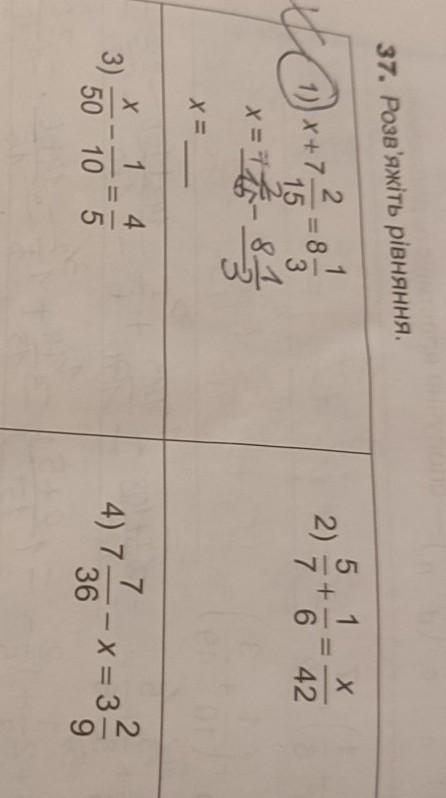 37. Розв'яжіть рівняння.
1) x + 7 2/15 = 8 1/3
x = 7 2/15 - 8 1/3
x = ___
2) 5/7 + 1/6 = x/42
3) x/50 - 1/10 = 4/5
4) 7 7/36 - x = 3 2/9